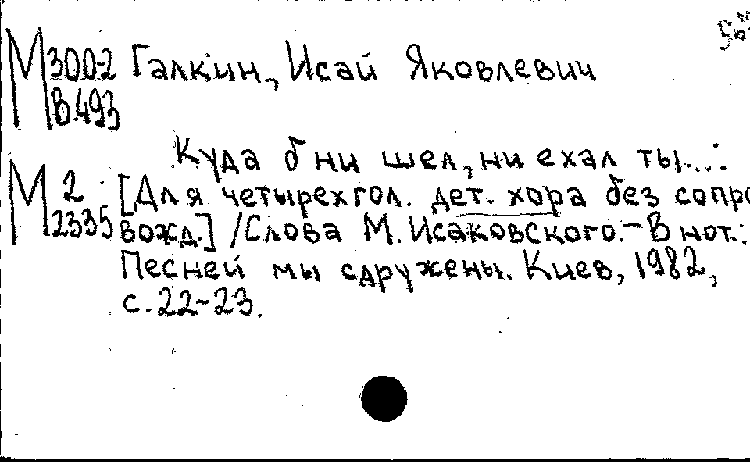 М 300-2 Галкин, Исай Яковлевич
В.493
Куда б ни шел, ни ехал ты...:
М 2 [Для четырехгол. дет. хора без сопро
2335 вожд.] / Слова М. Исаковского. - В нот.:
Песней мы сдружены. Киев, 1982,
с. 22-23.